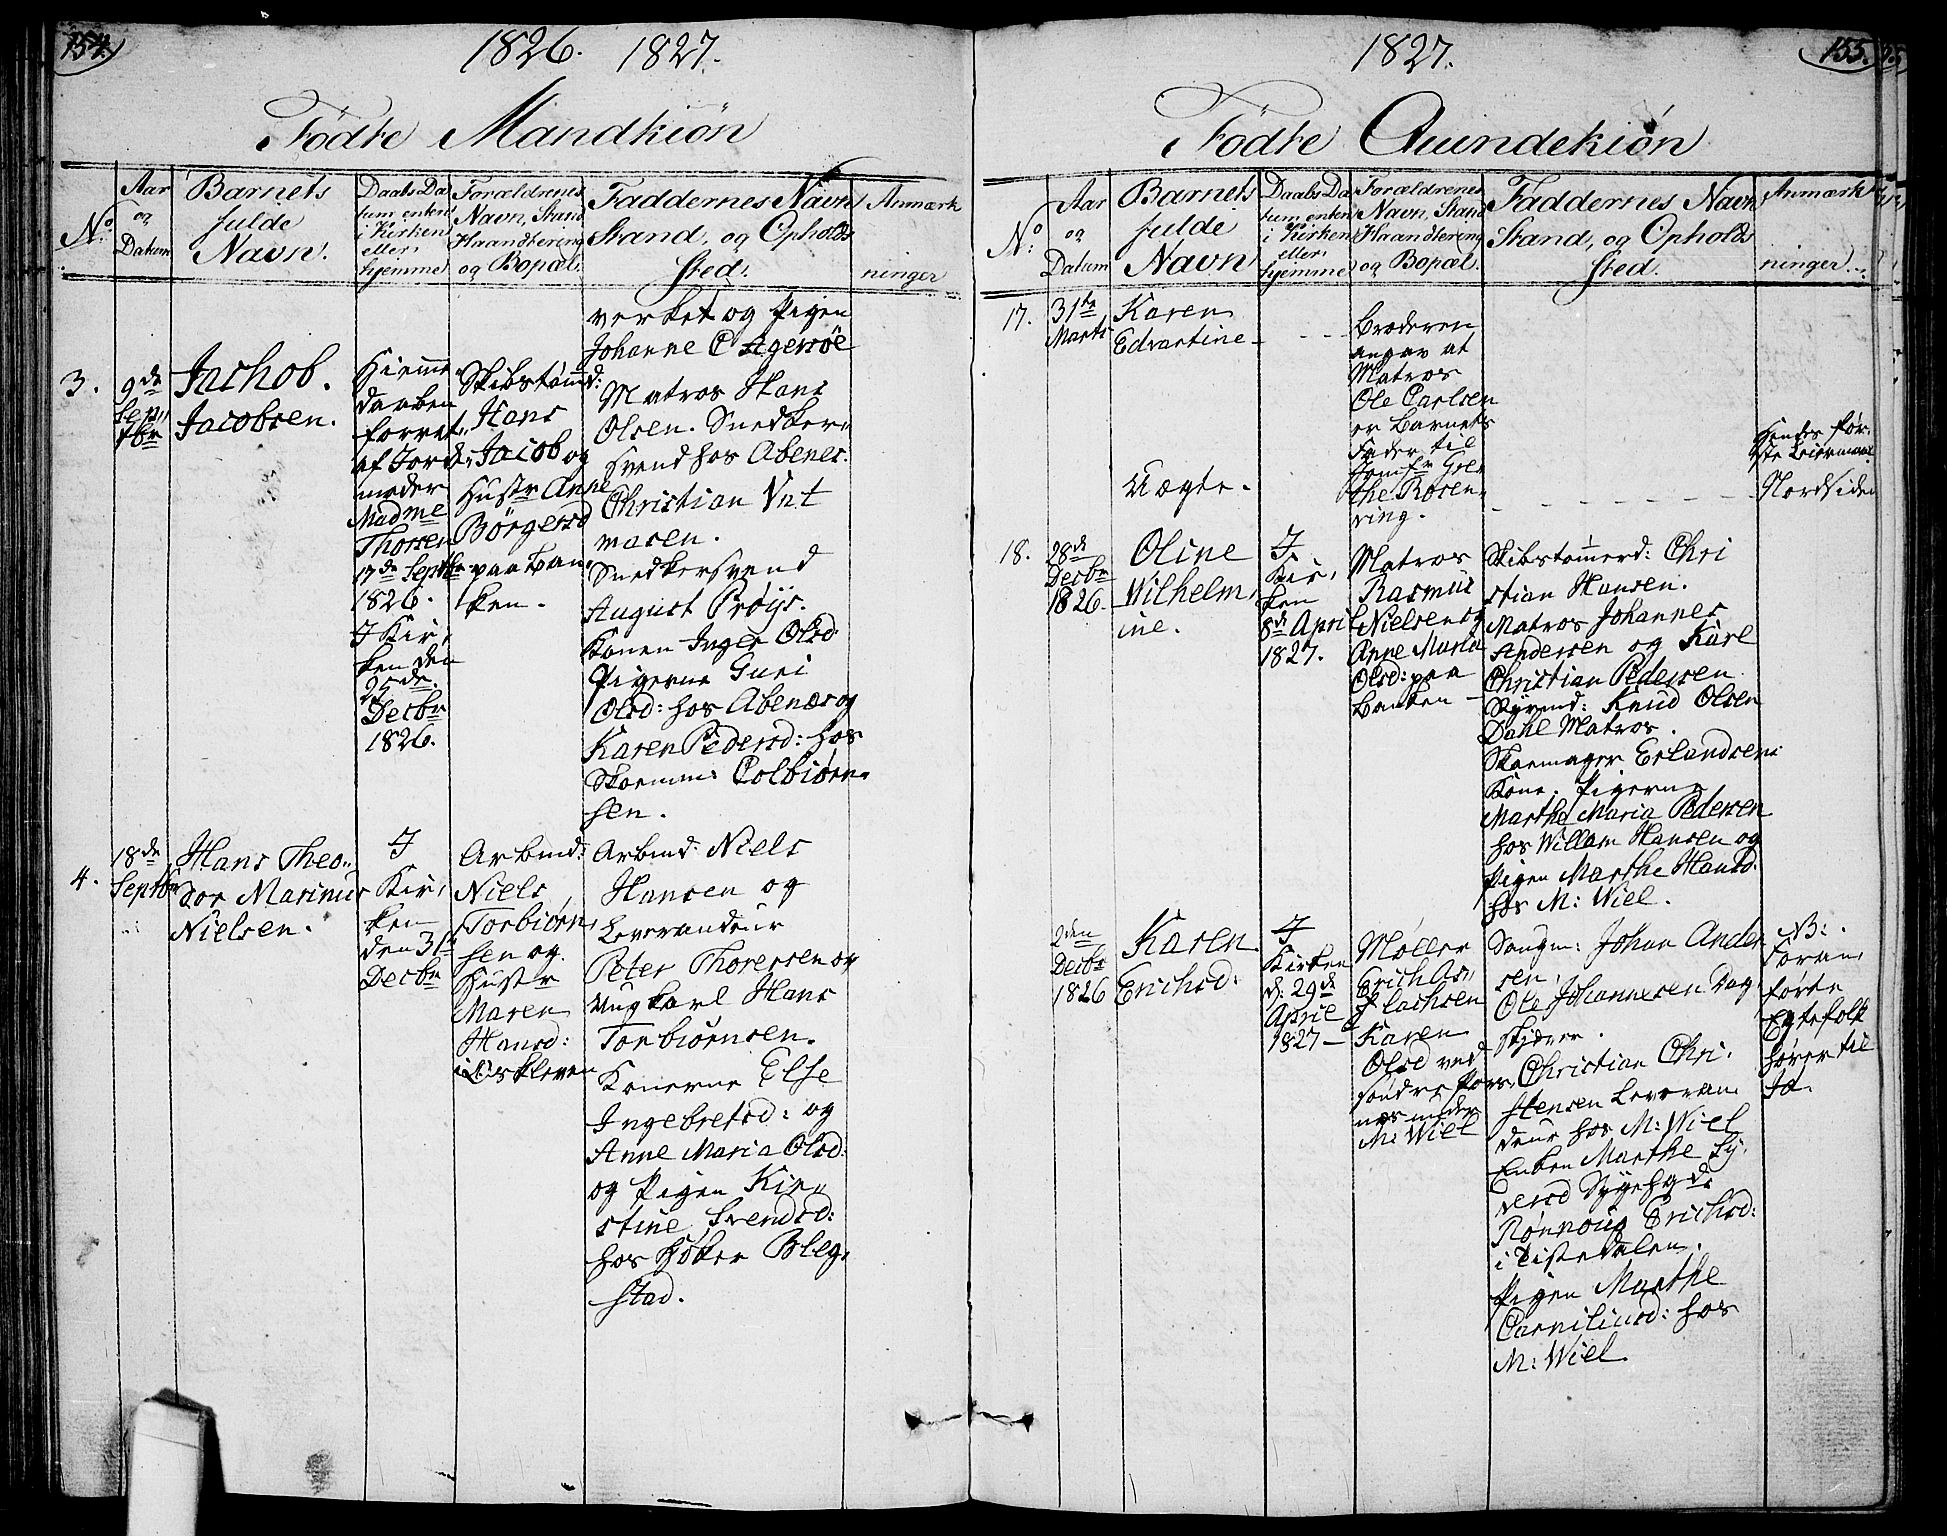 154.
1826. 1827.
Fødte Mandkiøn
No.
Aar
og
Datum
Barnets
fulde
Navn.
Daabs Da
tum enten
i Kirken
eller
hjemme
Forældrenes
Navn, Stand
Haandtering
og Bopæl.
Faddernes Navn
Stand, og Opholds
sted.
Anmærk
ninger
verket og Pigen
Johanne C Agersøe
3.
9de
Sep„
tbr
Jachob.
Jacobsen.
Hiemme
daaben
forret„
af Jorde
moder
Madme
Thorsen
17de Septbr
1826.
I Kir„
ken den
25de
Decbr
1826.
Skibstømd:
Hans
Jacob og
Hustr Anne
Börgersd
paa Ban„
ken.
Matros Hans
Olsen. Snedker„
svend hos Abenes.
Christian Unt
masen.
Snedkersvend
August Prøijs.
Konen Inger Olsd:
Pigerne Guri
Olsd: hos Abenæs og
Karen Pedersd: hos
Skoemm: Colbiørn„
sen.
4.
18de
Septbr
Hans Theo„
dor Marinus
Nielsen.
I
Kir„
ken
den 31te
Decbr
Arbmd:
Niels
Torbiørn„
sen og
Hustr
Maren
Hansd:
i Oskleven
Arbmd: Niels
Hansen og
Leverandeur
Peter Thoresen og
Ungkarl Hans
Torbiørnsen.
Konerne Else
Ingebretsd: og
Anne Maria Olsd:
og Pigen Kir„
stine Svendsd:
hos Høker Bleg„
stad.
155.
1827.
Fødte Quindekiøn
No.
Aar
og
Datum
Barnets
fulde
Navn
Daabs Da
tum enten
i Kirken
eller
hjemme
Forældrenes
Navn, Stand
Haandtering
og Bopæl.
Faddernes Navn
Stand, og Opholds
sted.
Anmærk
ninger.
17.
31te
Marts
Karen
Edvartine
Uægte.
Broderen
angav at
Matros
Ole Carlsen
er Barnets
Fader til
Jomfr Gre„
the Rosen„
ring.
Hendes før„
ste Leiermaal
Nordsiden
18.
28de
Decbr
1826.
Oline
Wilhelm„
ine.
I
Kir„
ken
8de April
1827.
Matros
Rasmus
Nielsen og
Anne Maria
Olsd: paa
Banken
Skibstømerd: Chri
stian Hansen.
Matros Johannes
Andersen og Karl
Christian Pedersen
Knud Olsen
Dahl Matros.
Skoemager Erlandsens
Kone. Pigerne
Marthe Maria Pedersen
hos Willam Hansen og
Pigen Marthe Hansd:
hos M: Wiel.
2den
Decbr
1826
Karen
Erichsd:
I
Kirken
d: 29de
April
1827
Møller
Erich As„
lachsen
Karen
Olsd ved
søndre Pors„
næs under
M: Wiel
Saugm: Johan Ander
sen.
Ole Johannesen Dag
skjærer.
Christian Chri„
stensen Leveran„
deur hos M: Wiel
Enken Marthe Sy„
versd
Rønnoug Erichsd:
i Tistedalen.
Pigen Marthe
Carniliusd: hos
M: Wiel
NB:
Foran„
førte
Egtefolk
hører til
Id.